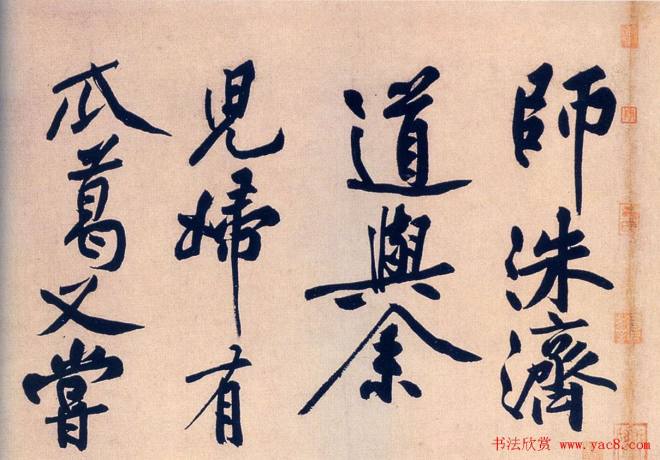 師洙濟
道與余
兒婦有
瓜葛又嘗
书法欣赏
www.yac8.com